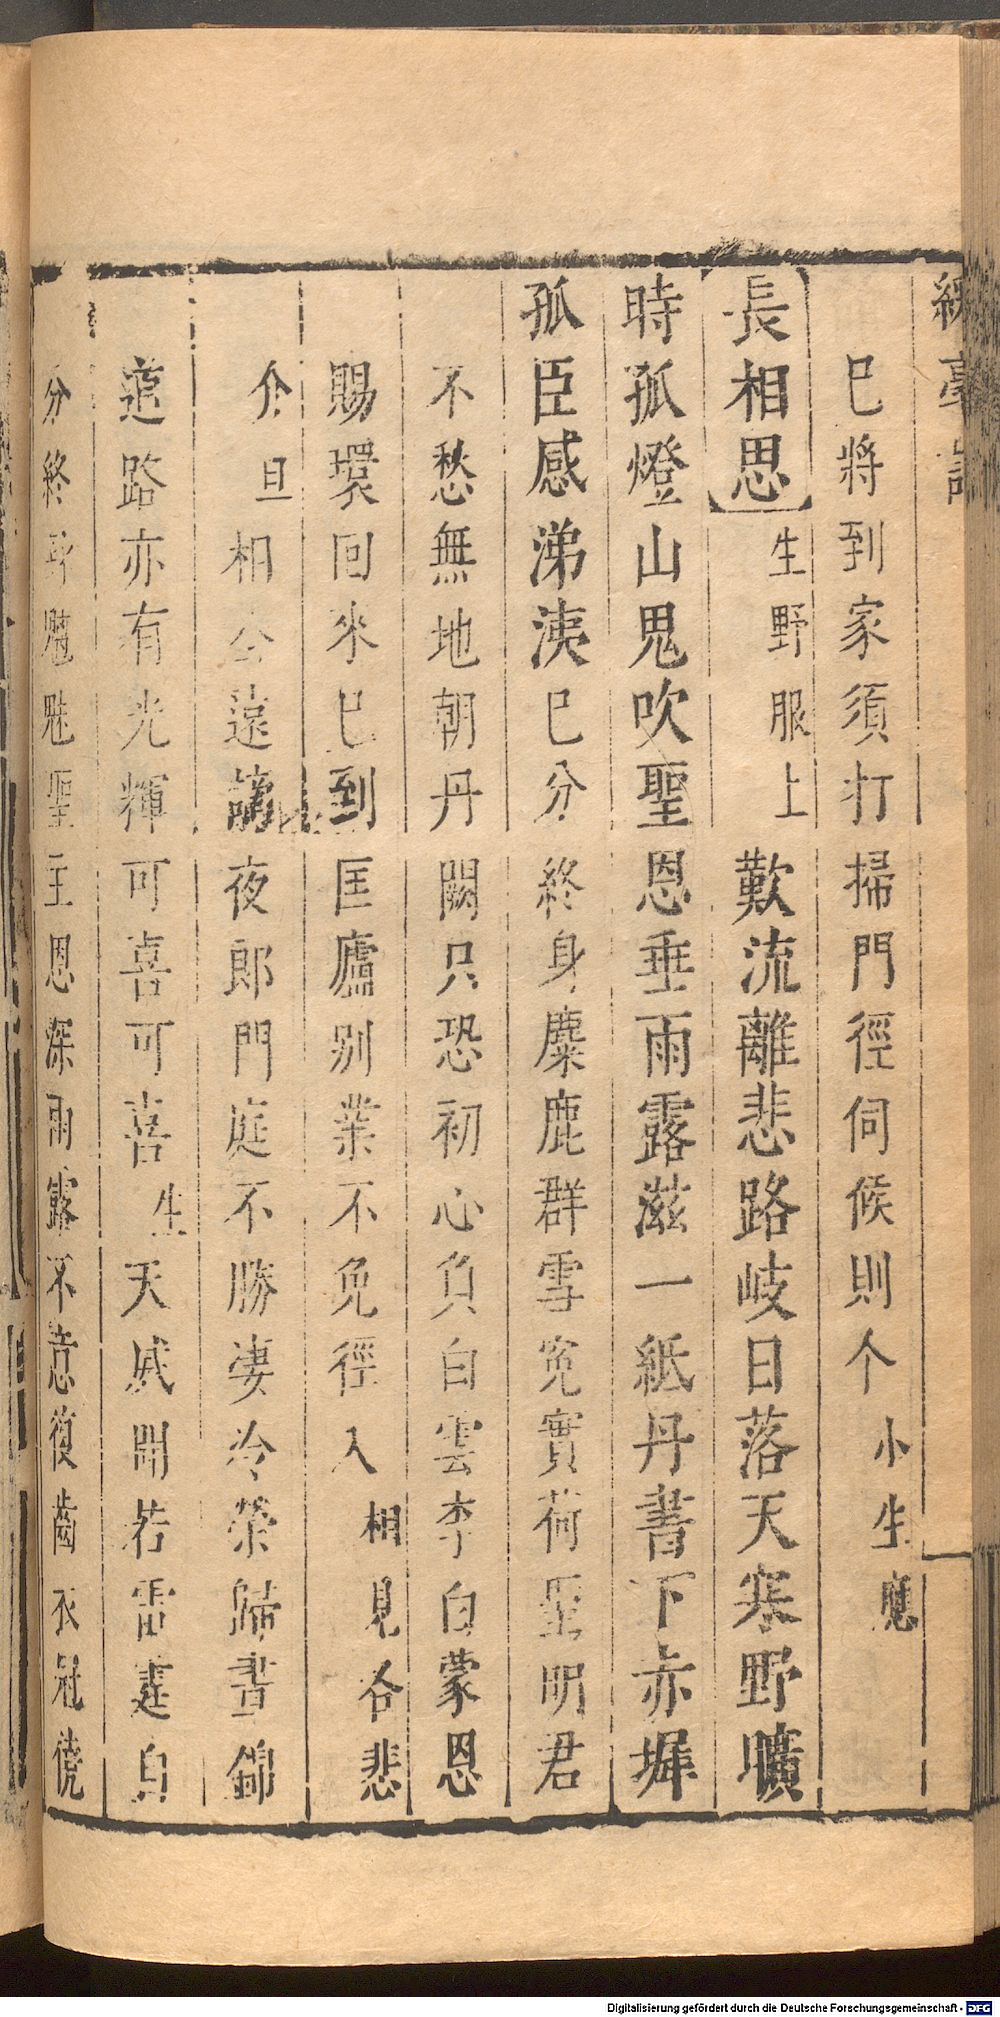 綵毫記
巳將到家須打掃門徑伺候則个小生應
長相思生野服上歎流離悲路岐日落天寒野曠
時孤燈山鬼吹聖恩垂雨露滋一紙丹書下赤墀
孤臣感涕洟巳分終身麋鹿群雪寃實荷聖明君
不愁無地朝丹闕只恐初心負白雲李白蒙恩
賜環回來巳到匡廬别業不免徑入相見各悲
介旦相公遠謫夜郎門庭不勝淒冷榮歸晝錦
道路亦有光輝可喜可喜生天威開若雷霆自
分終身魑魅聖主恩深雨露不意復齒衣冠僥
Digitalisierung gefördert durch die Deutsche Forschungsgemeinschaft - DFG